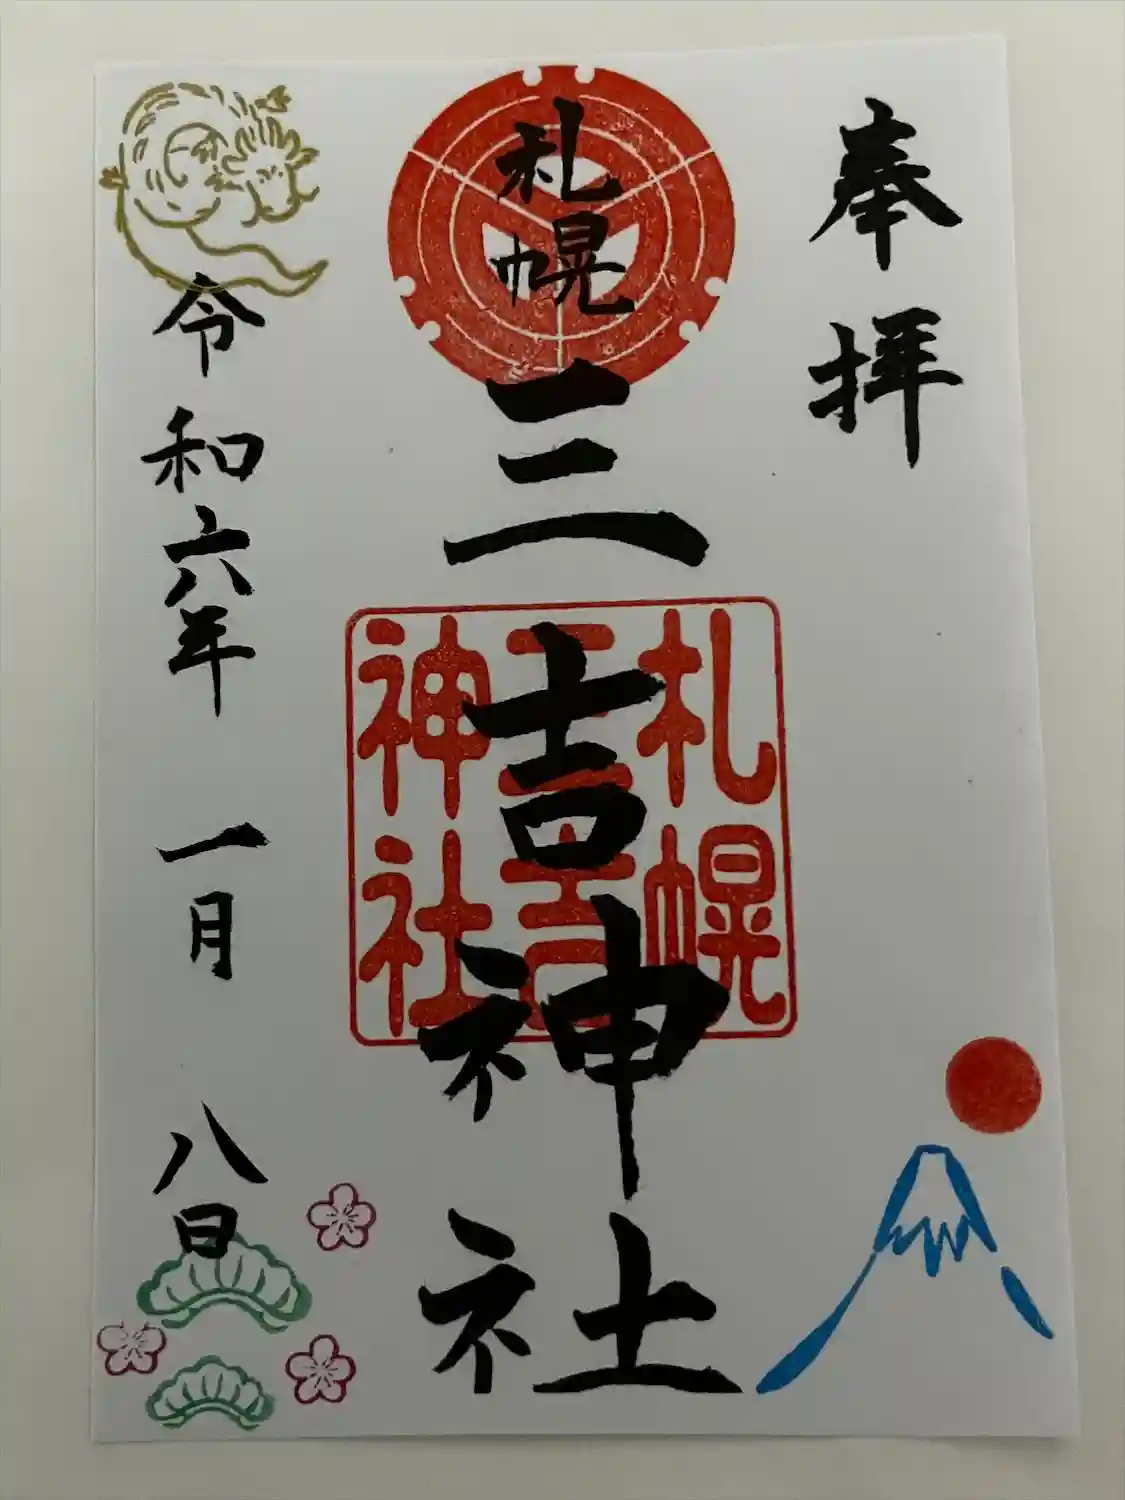 奉拝
札幌
三吉神社
札幌
三吉
神社
令和六年一月八日